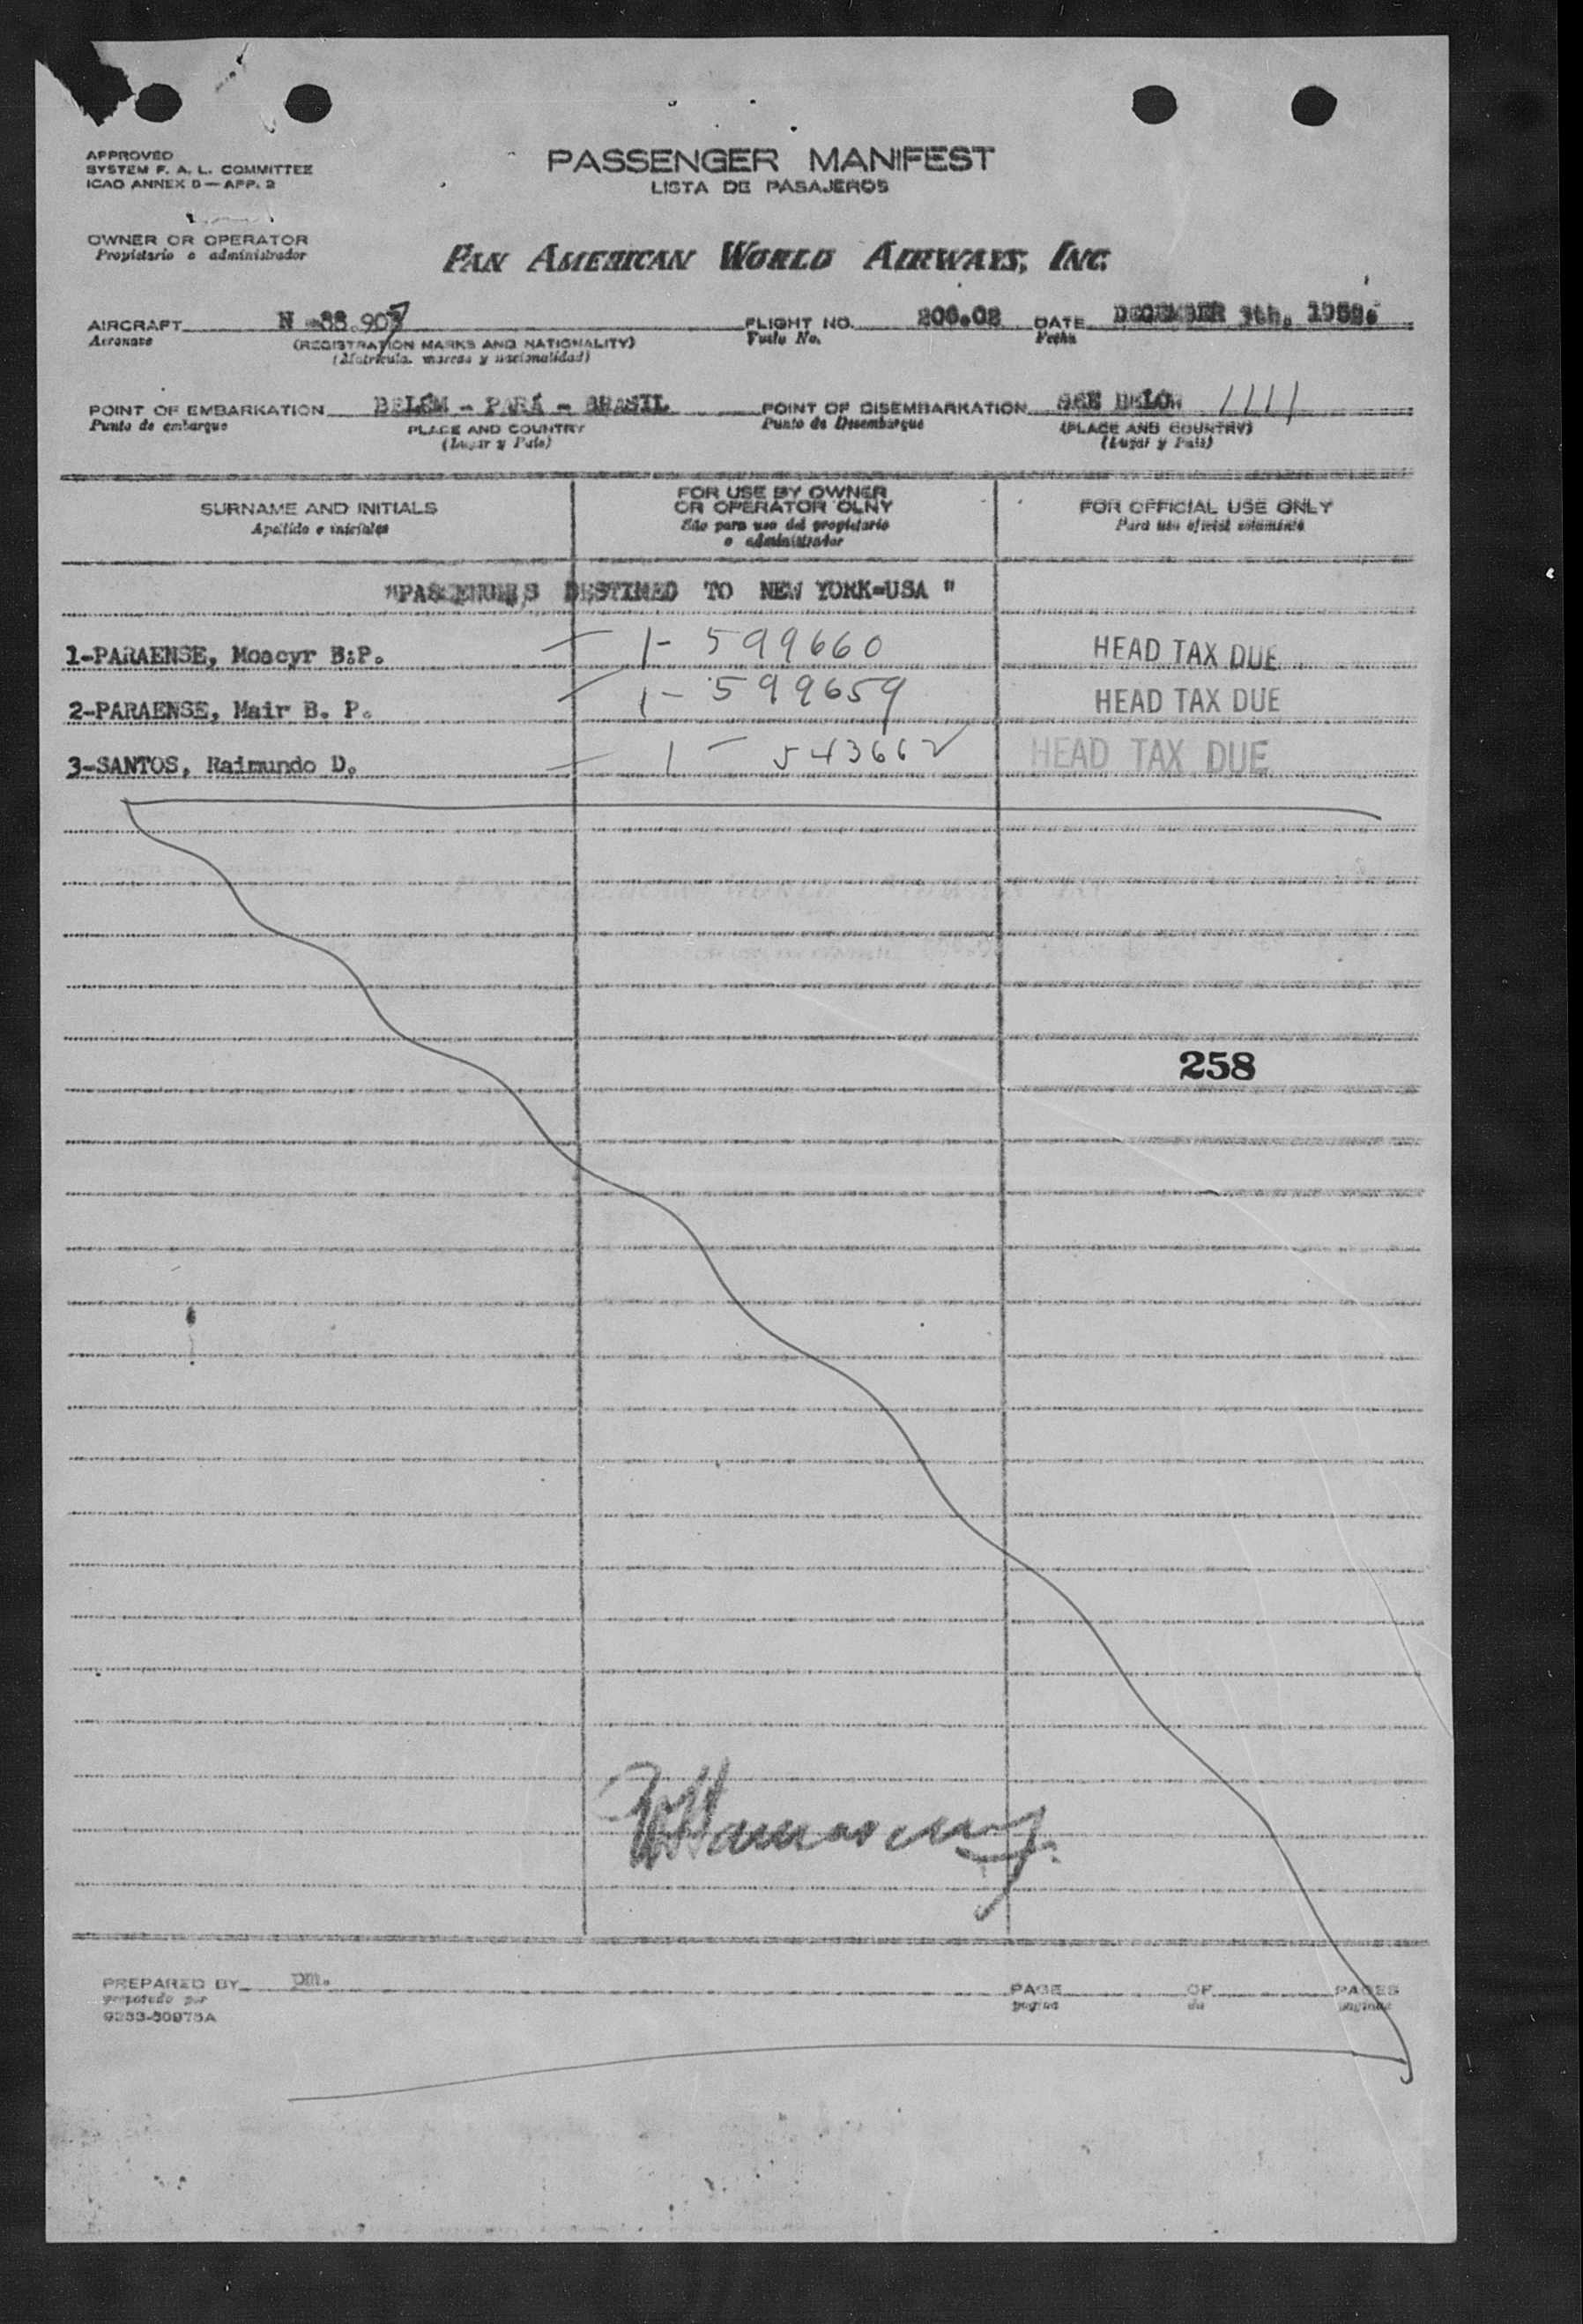 APPROVED
SYSTEM F. A. L. COMMITTEE
ICAO ANNEX 9 — APP. 2
PASSENGER MANIFEST
LISTA DE PASAJEROS
OWNER OR OPERATOR
Propietario o administrador
PAN AMERICAN WORLD AIRWAYS, INC.
AIRCRAFT N -88.907 FLIGHT NO. 206.02 DATE DECEMBER
Aeronave (REGISTRATION MARKS AND NATIONALITY) Vuelo No. Fecha
(Matrícula, marcas y nacionalidad)
POINT OF EMBARKATION BELÉM - PARÁ - BRASIL POINT OF DISEMBARKATION SEE BELOW ////
Punto de embarque PLACE AND COUNTRY Punto de Desembarque (PLACE AND COUNTRY)
(Lugar y País) (Lugar y País)
SURNAME AND INITIALS
Apellido e iniciales
FOR USE BY OWNER
OR OPERATOR OLNY
Sólo para uso del propietario
o administrador
FOR OFFICIAL USE ONLY
Para uso oficial solamente
"PASSENGERS DESTINED TO NEW YORK-USA "
1-PARAENSE, Moacyr B.P. — 1- 599660 HEAD TAX DUE
2-PARAENSE, Mair B. P. — 1- 599659 HEAD TAX DUE
3-SANTOS, Raimundo D. — 1 - 543662 HEAD TAX DUE
258
PREPARED BY pm. PAGE OF PAGES
preparado por pagina de paginas
9233-50975A